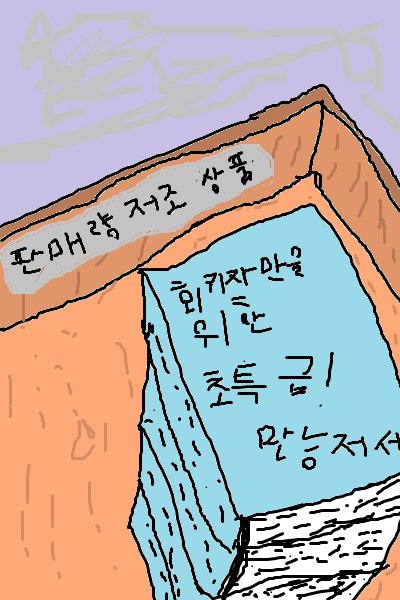 판매량 저조 상품
회귀자만을
위한
초특급!
만능저서